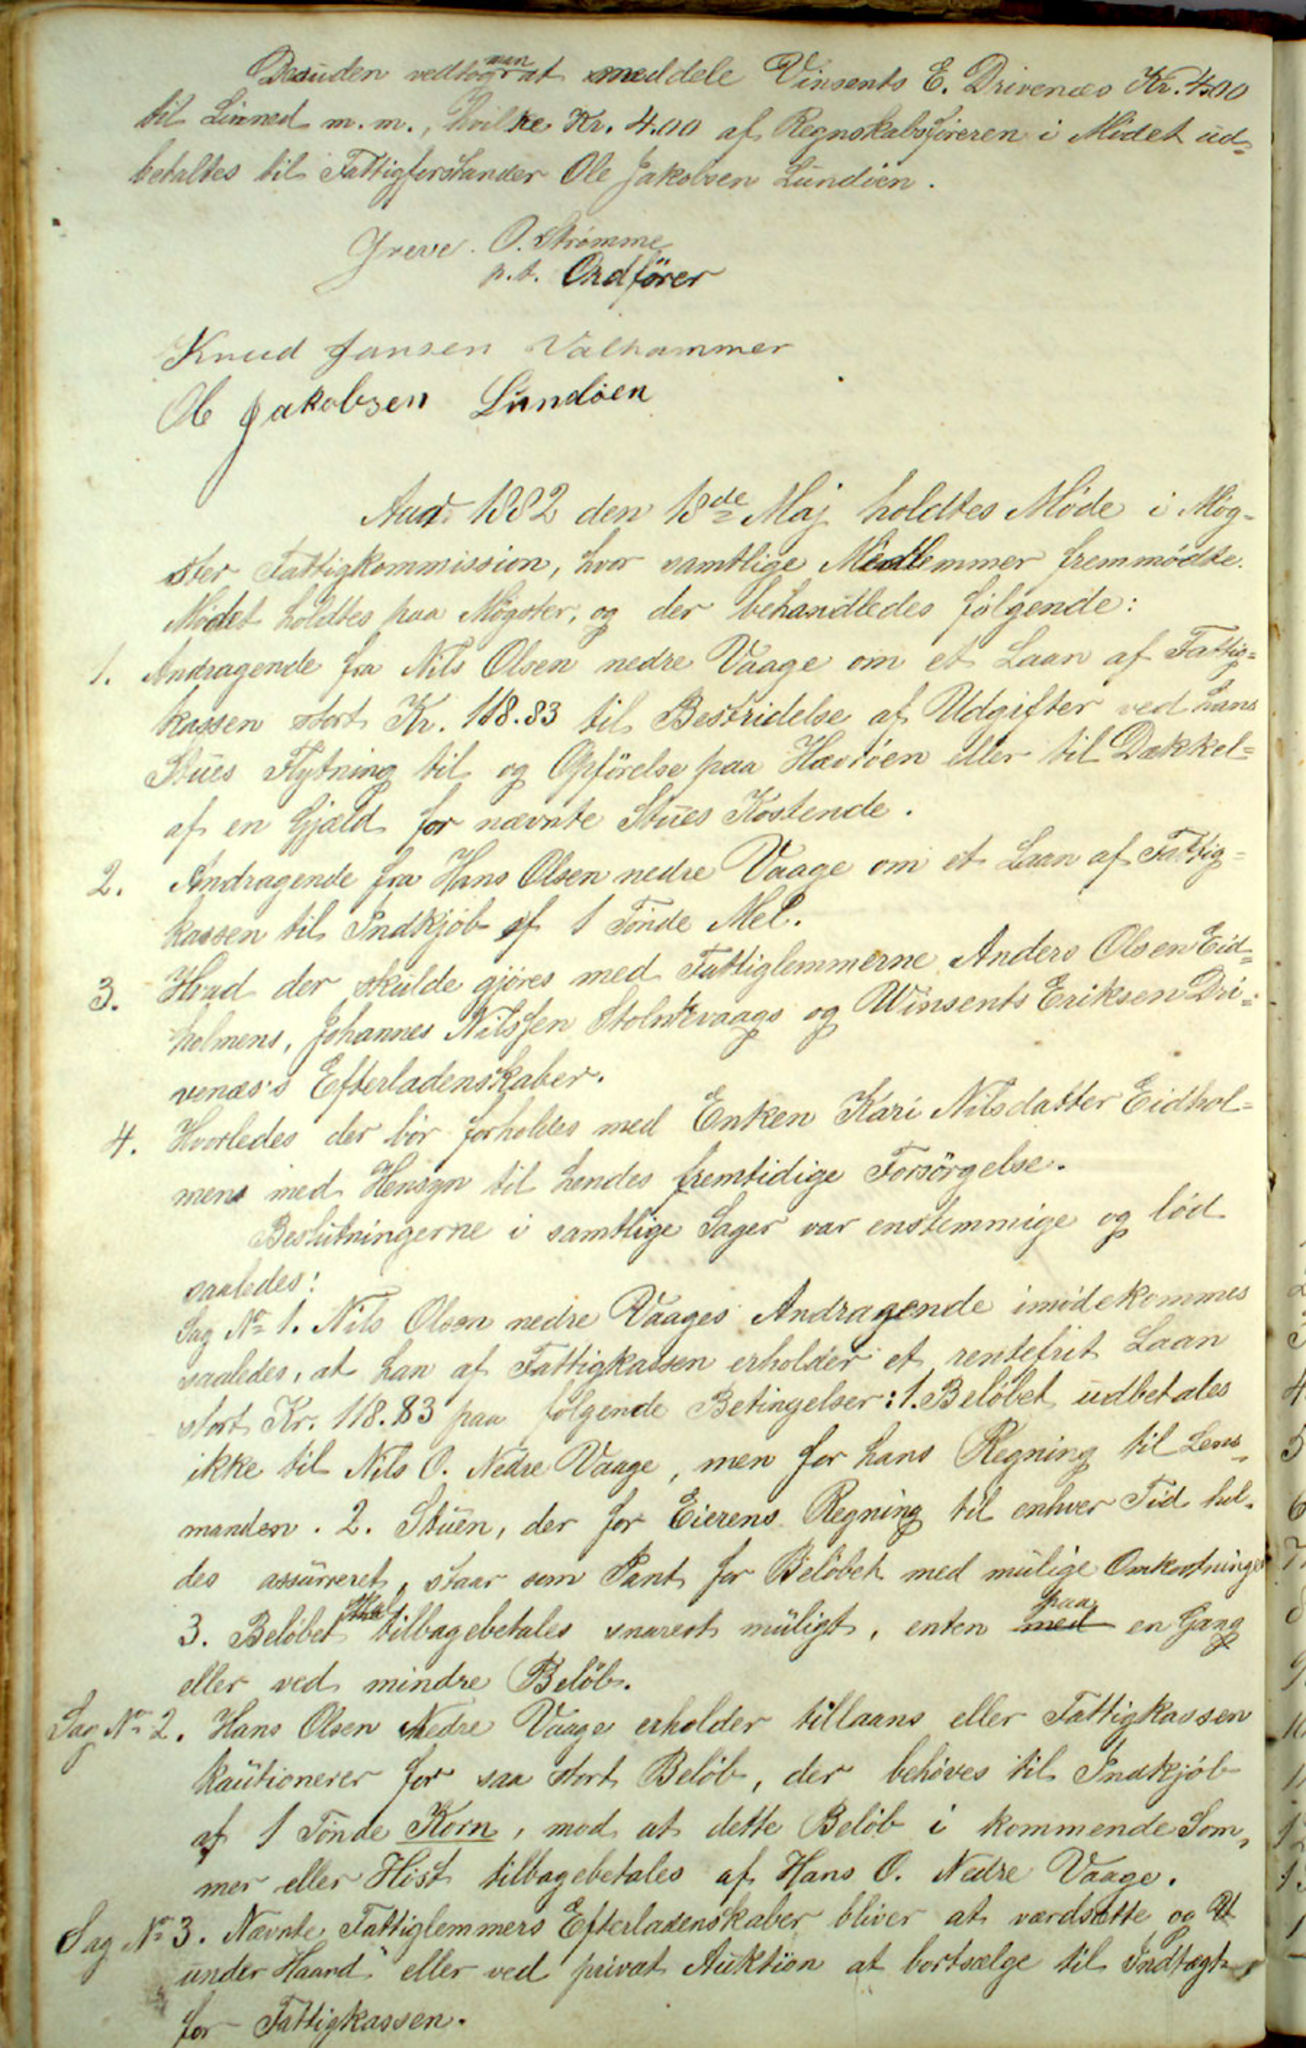 Desuden vedtog man at meddele Vinsents E. Drivenæs Kr. 4.00
til Linned m.m., hvilke Kr. 4.00 af Regnskabsföreren i Mödet ud-
betaltes til Fattigforstander Ole Jakobsen Lundöen.
Greve. O. Strömme
p.t. Ordförer
Knud Jansen Valhammer
Ole Jakobsen Lundöen
Aar 1882 den 18de Maj holdtes Möde i Møg-
ster Fattigkommission, hvor samtlige Medlemmer fremmödte.
Mödet holdtes paa Møgster, og der behandledes fölgende:
1. Andragende fra Nils Olsen nedre Vaage om et Laan af Fattig-
kassen stort Kr. 118.83 til Bestridelse af Udgifter ved hans
Stues Flytning til og Opförelse paa Hævröen eller til Dækkel-
af en Gjæld for nævnte Stues Kostende.
2. Andragende fra Hans Olsen nedre Vaage om et Laan af Fattig-
kassen til Indkjöb af 1 Tönde Mel.
3. Hvad der skulde gjöres med Fattiglemmerne Anders Olsen Eid-
holmens, Johannes Nilssen Stolmevaags og Winsents Eriksen Dri-
venæs's Efterladenskaber.
4. Hvorledes der bör forholdes med Enken Kari Nilsdatter Eidhol-
mens med Hensyn til hendes fremtidige Forsörgelse.
Beslutningerne i samtlige Sager var enstemmige og löd
saaledes:
Sag No 1. Nils Olsen nedre Vaages Andragende imödekommes
saaledes, at han af Fattigkassen erholder et rentefrit Laan
stort Kr. 118.83 paa fölgende Betingelser: 1. Belöbet udbetales
ikke til Nils O. Nedre Vaage, men for hans Regning til Lens-
manden. 2. Stuen, der for Eierens Regning til enhver Tid hol-
des assurreret, staar som Pant for Belöbet med mulige Omkostninger
3. Belöbet skal tilbagebetales snarest muligt, enten med paa en Gang
eller ved mindre Belöb.
Sag No 2. Hans Olsen Nedre Vaage erholder tillaans eller Fattigkassen
kautionerer for saa stort Belöb, der behöves til Indkjöb
af 1 Tönde Korn, mod at dette Belöb i kommende Som-
mer eller Höst tilbagebetales af Hans O. Nedre Vaage.
Sag No 3. Nævnte Fattiglemmers Efterladenskaber bliver at værdsætte og
under Haand eller ved privat Auktion at bortsælge til Indtægt
for Fattigkassen.